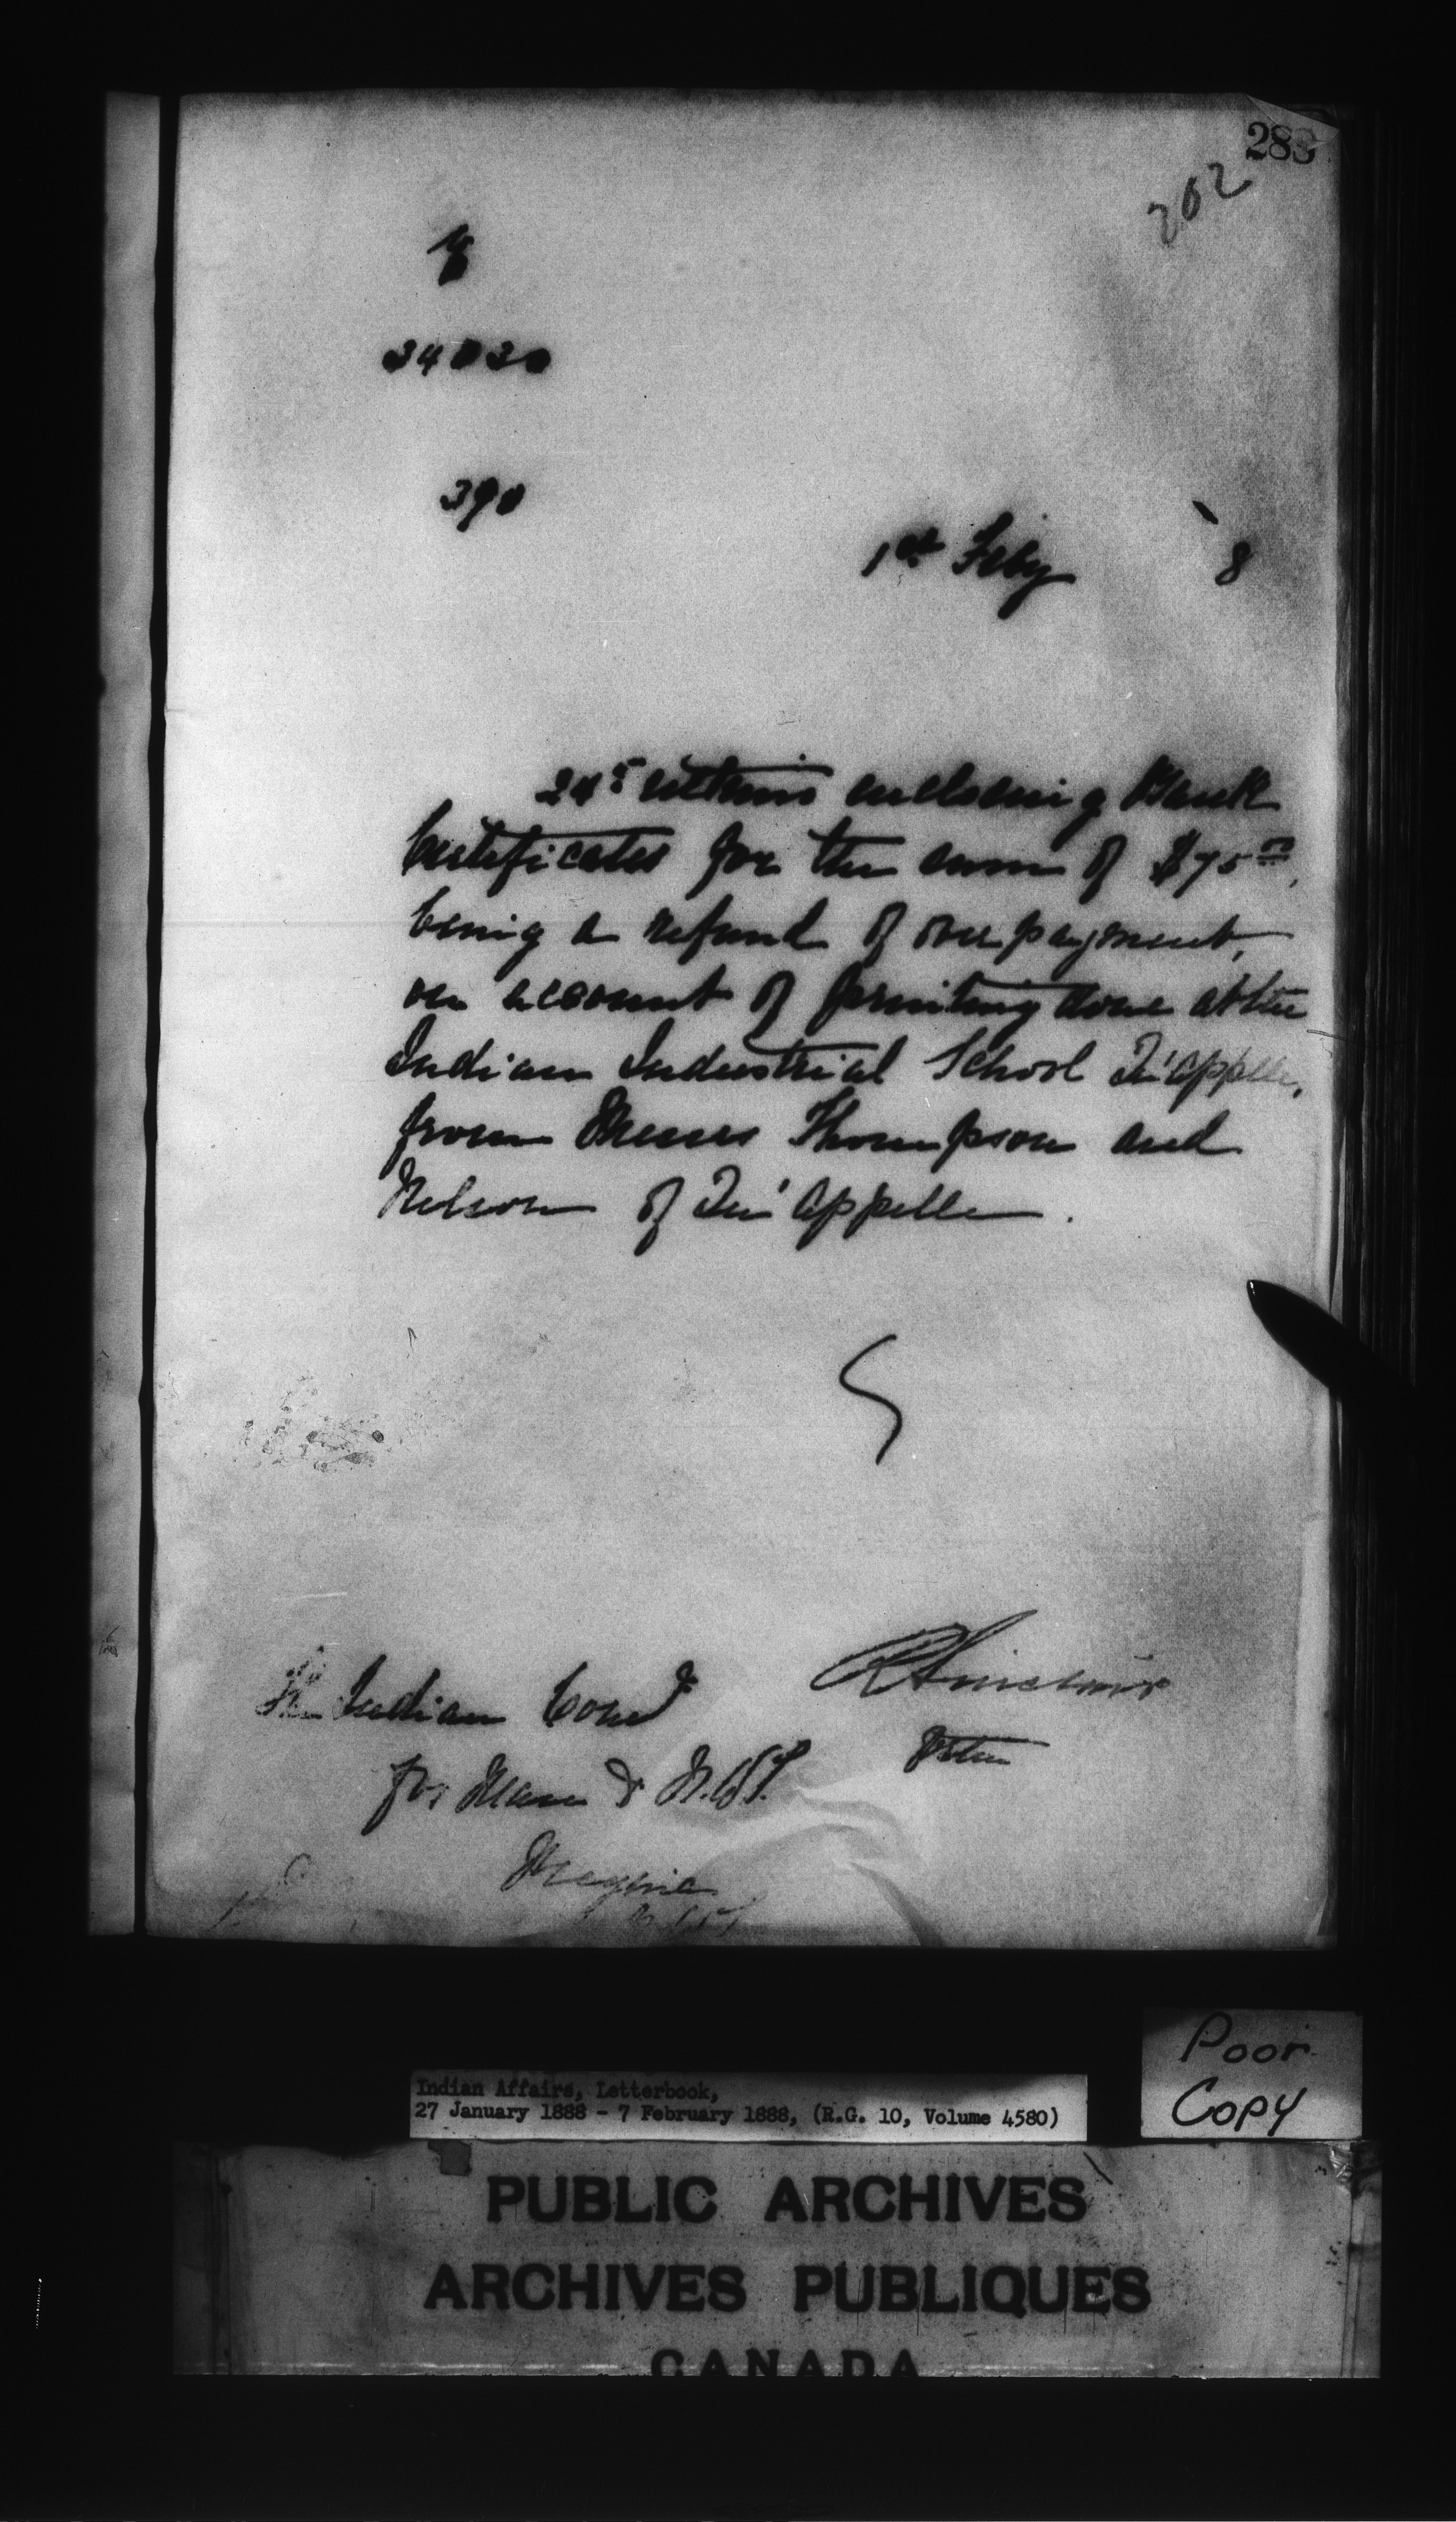 283
202
34030
390
1st Feby 8
24th ultimo enclosing Bank
Certificates for the sum of $75.00,
being a refund of over payment,
on account of printing done at the
Indian Industrial School Qu'Appelle,
from Messrs Thompson and
Nelson of Qu'Appelle.
R Sinclair
The Indian Comr
for Man & N.W.T.
Regina
N.W.T
Poor
Copy
Indian Affairs, Letterbook,
27 January 1888 - 7 February 1888, (R.G. 10, Volume 4580)
PUBLIC ARCHIVES
ARCHIVES PUBLIQUES
CANADA